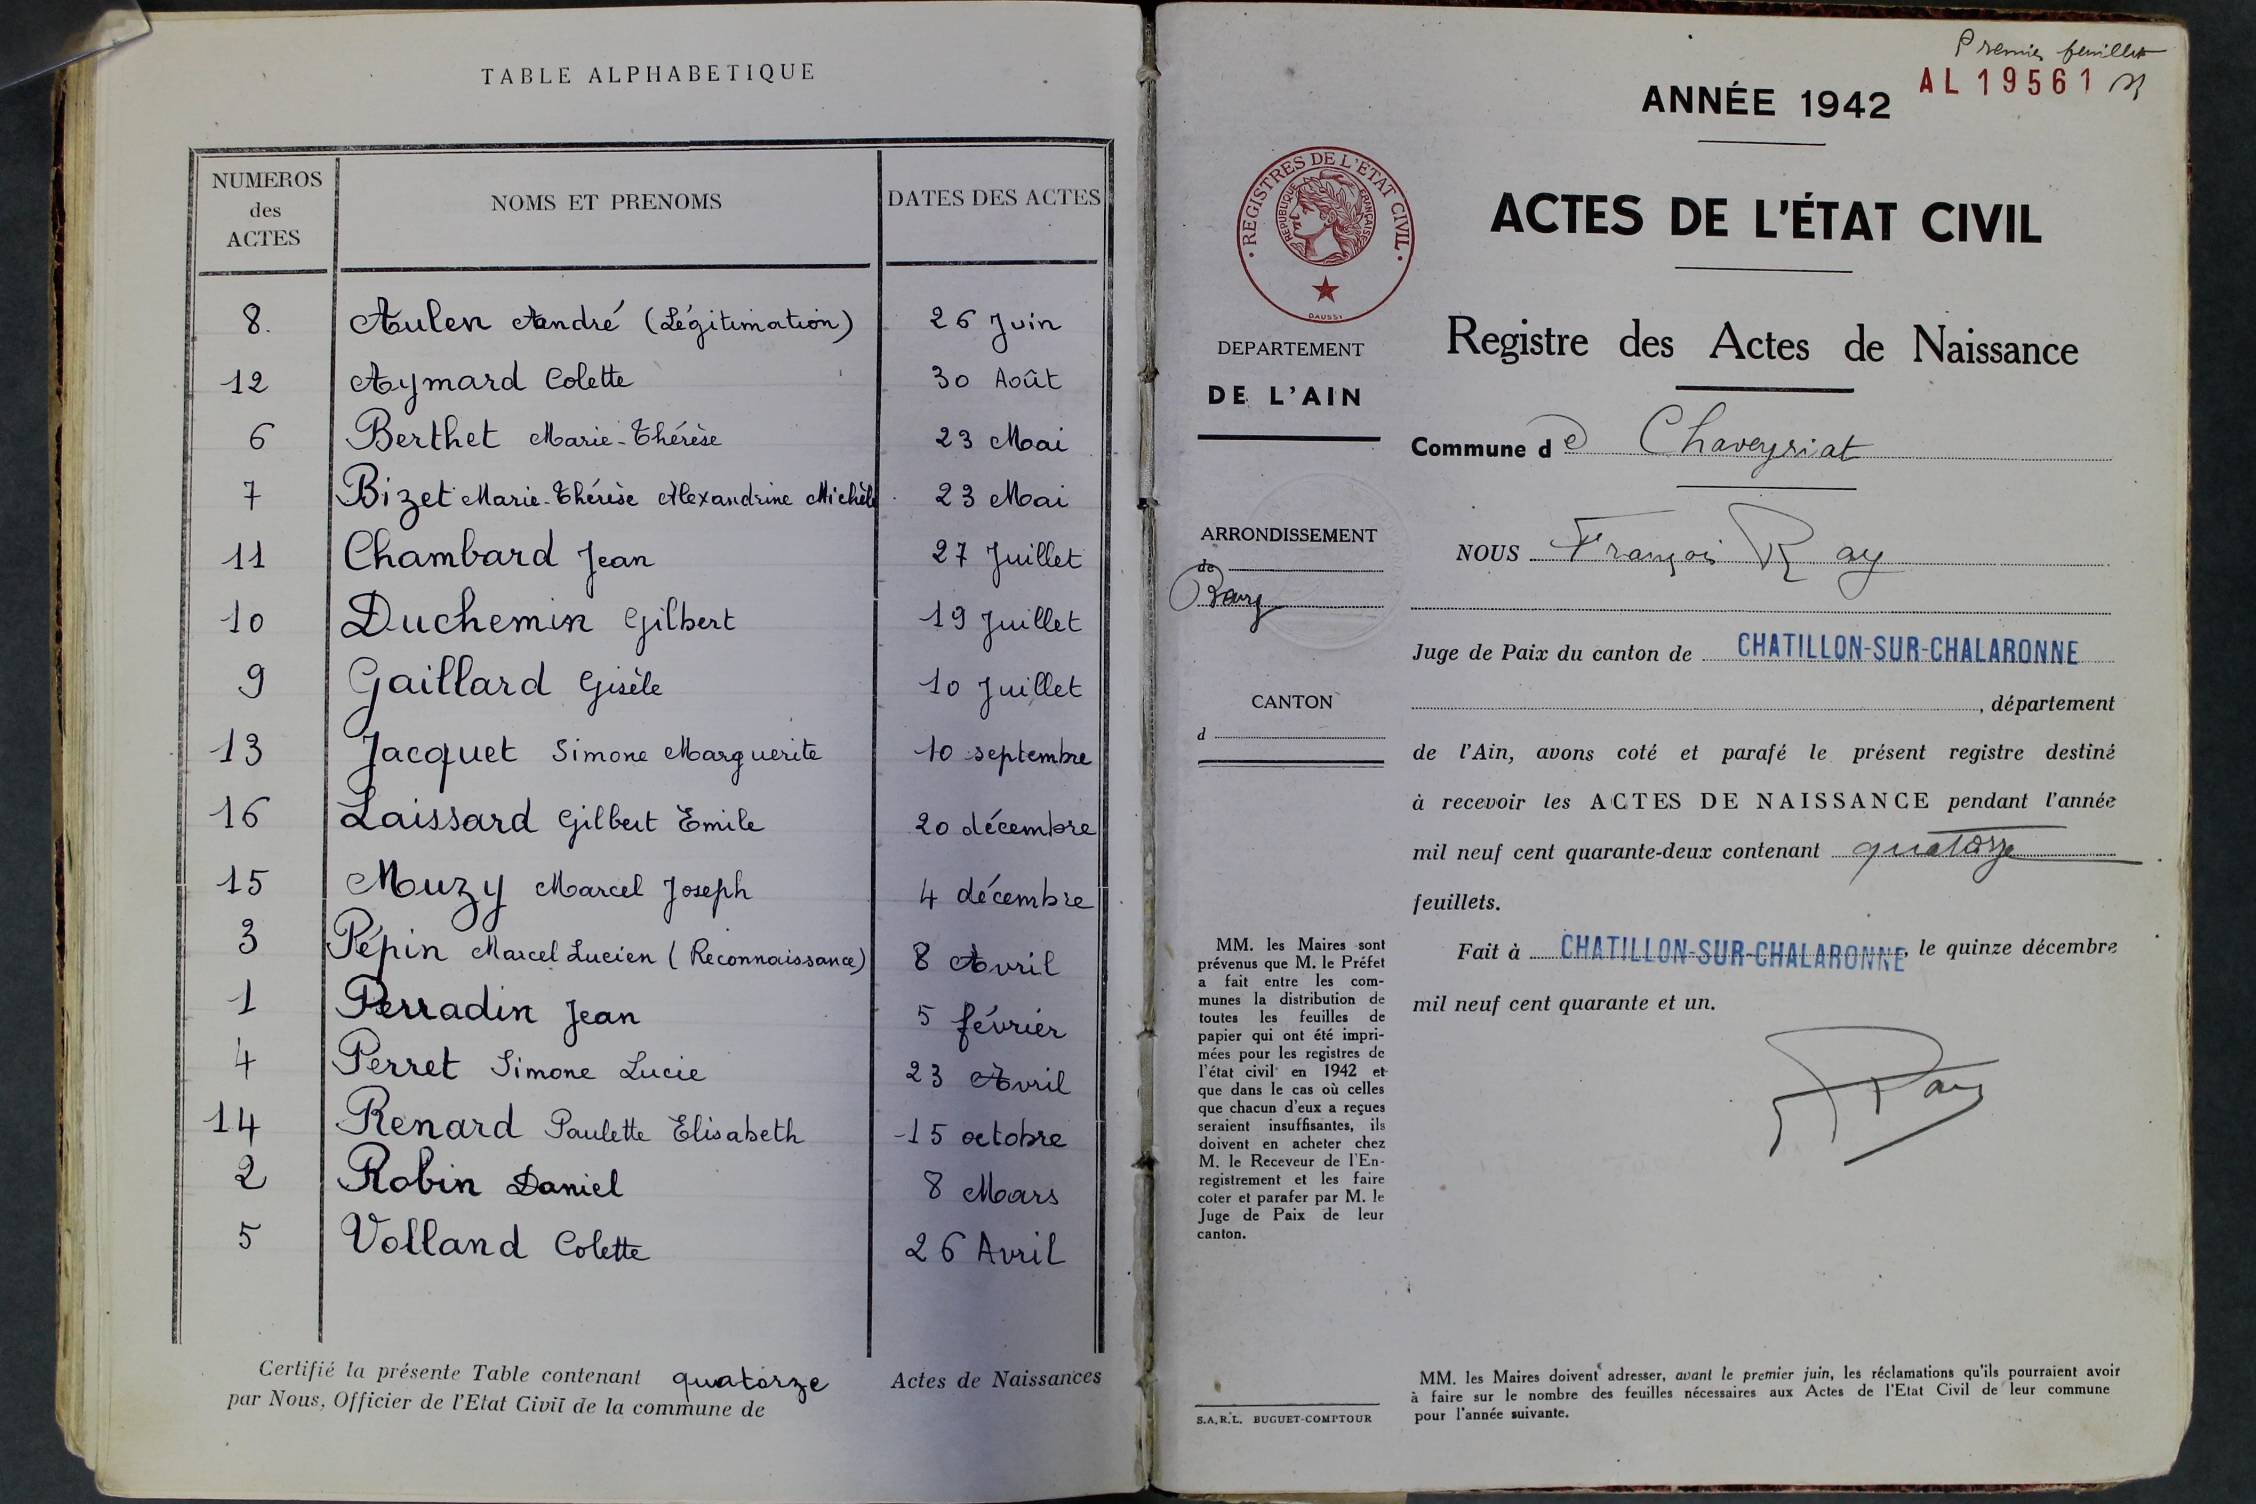 TABLE ALPHABETIQUE
NUMEROS des ACTES NOMS ET PRENOMS DATES DES ACTES
8. Aulen André (Légitimation) 26 Juin
12 Aymard Colette 30 Août
6 Berthet Marie-Thérèse 23 Mai
7 Bizet Marie-Thérèse Alexandrine Michèle 23 Mai
11 Chambard Jean 27 Juillet
10 Duchemin Gilbert 19 Juillet
9 Gaillard Gisèle 10 Juillet
13 Jacquet Simone Marguerite 10 septembre
16 Laissard Gilbert Emile 20 décembre
15 Muzy Marcel Joseph 4 décembre
3 Pépin Marcel Lucien (Reconnaissance) 8 Avril
1 Perradin Jean 5 février
4 Perret Simone Lucie 23 Avril
14 Renard Paulette Elisabeth 15 octobre
2 Robin Daniel 8 Mars
5 Volland Colette 26 Avril
Certifié la présente Table contenant quatorze Actes de Naissances
par Nous, Officier de l'Etat Civil de la commune de
Premier feuillet
AL 19561
ANNÉE 1942
ACTES DE L'ÉTAT CIVIL
REGISTRES DE L'ÉTAT CIVIL
RÉPUBLIQUE FRANÇAISE
DAUSSY
DEPARTEMENT
DE L'AIN
ARRONDISSEMENT
de
Bourg
CANTON
d
MM. les Maires sont
prévenus que M. le Préfet
a fait entre les com-
munes la distribution de
toutes les feuilles de
papier qui ont été impri-
mées pour les registres de
l'état civil en 1942 et
que dans le cas où celles
que chacun d'eux a reçues
seraient insuffisantes, ils
doivent en acheter chez
M. le Receveur de l'En-
registrement et les faire
coter et parafer par M. le
Juge de Paix de leur
canton.
S.A.R.L. BUGUET-COMPTOUR
Registre des Actes de Naissance
Commune de Chaveyriat
NOUS François Ray
Juge de Paix du canton de CHATILLON-SUR-CHALARONNE
, département
de l'Ain, avons coté et parafé le présent registre destiné
à recevoir les ACTES DE NAISSANCE pendant l'année
mil neuf cent quarante-deux contenant quatorze
feuillets.
Fait à CHATILLON-SUR-CHALARONNE, le quinze décembre
mil neuf cent quarante et un.
Ray
MM. les Maires doivent adresser, avant le premier juin, les réclamations qu'ils pourraient avoir
à faire sur le nombre des feuilles nécessaires aux Actes de l'Etat Civil de leur commune
pour l'année suivante.